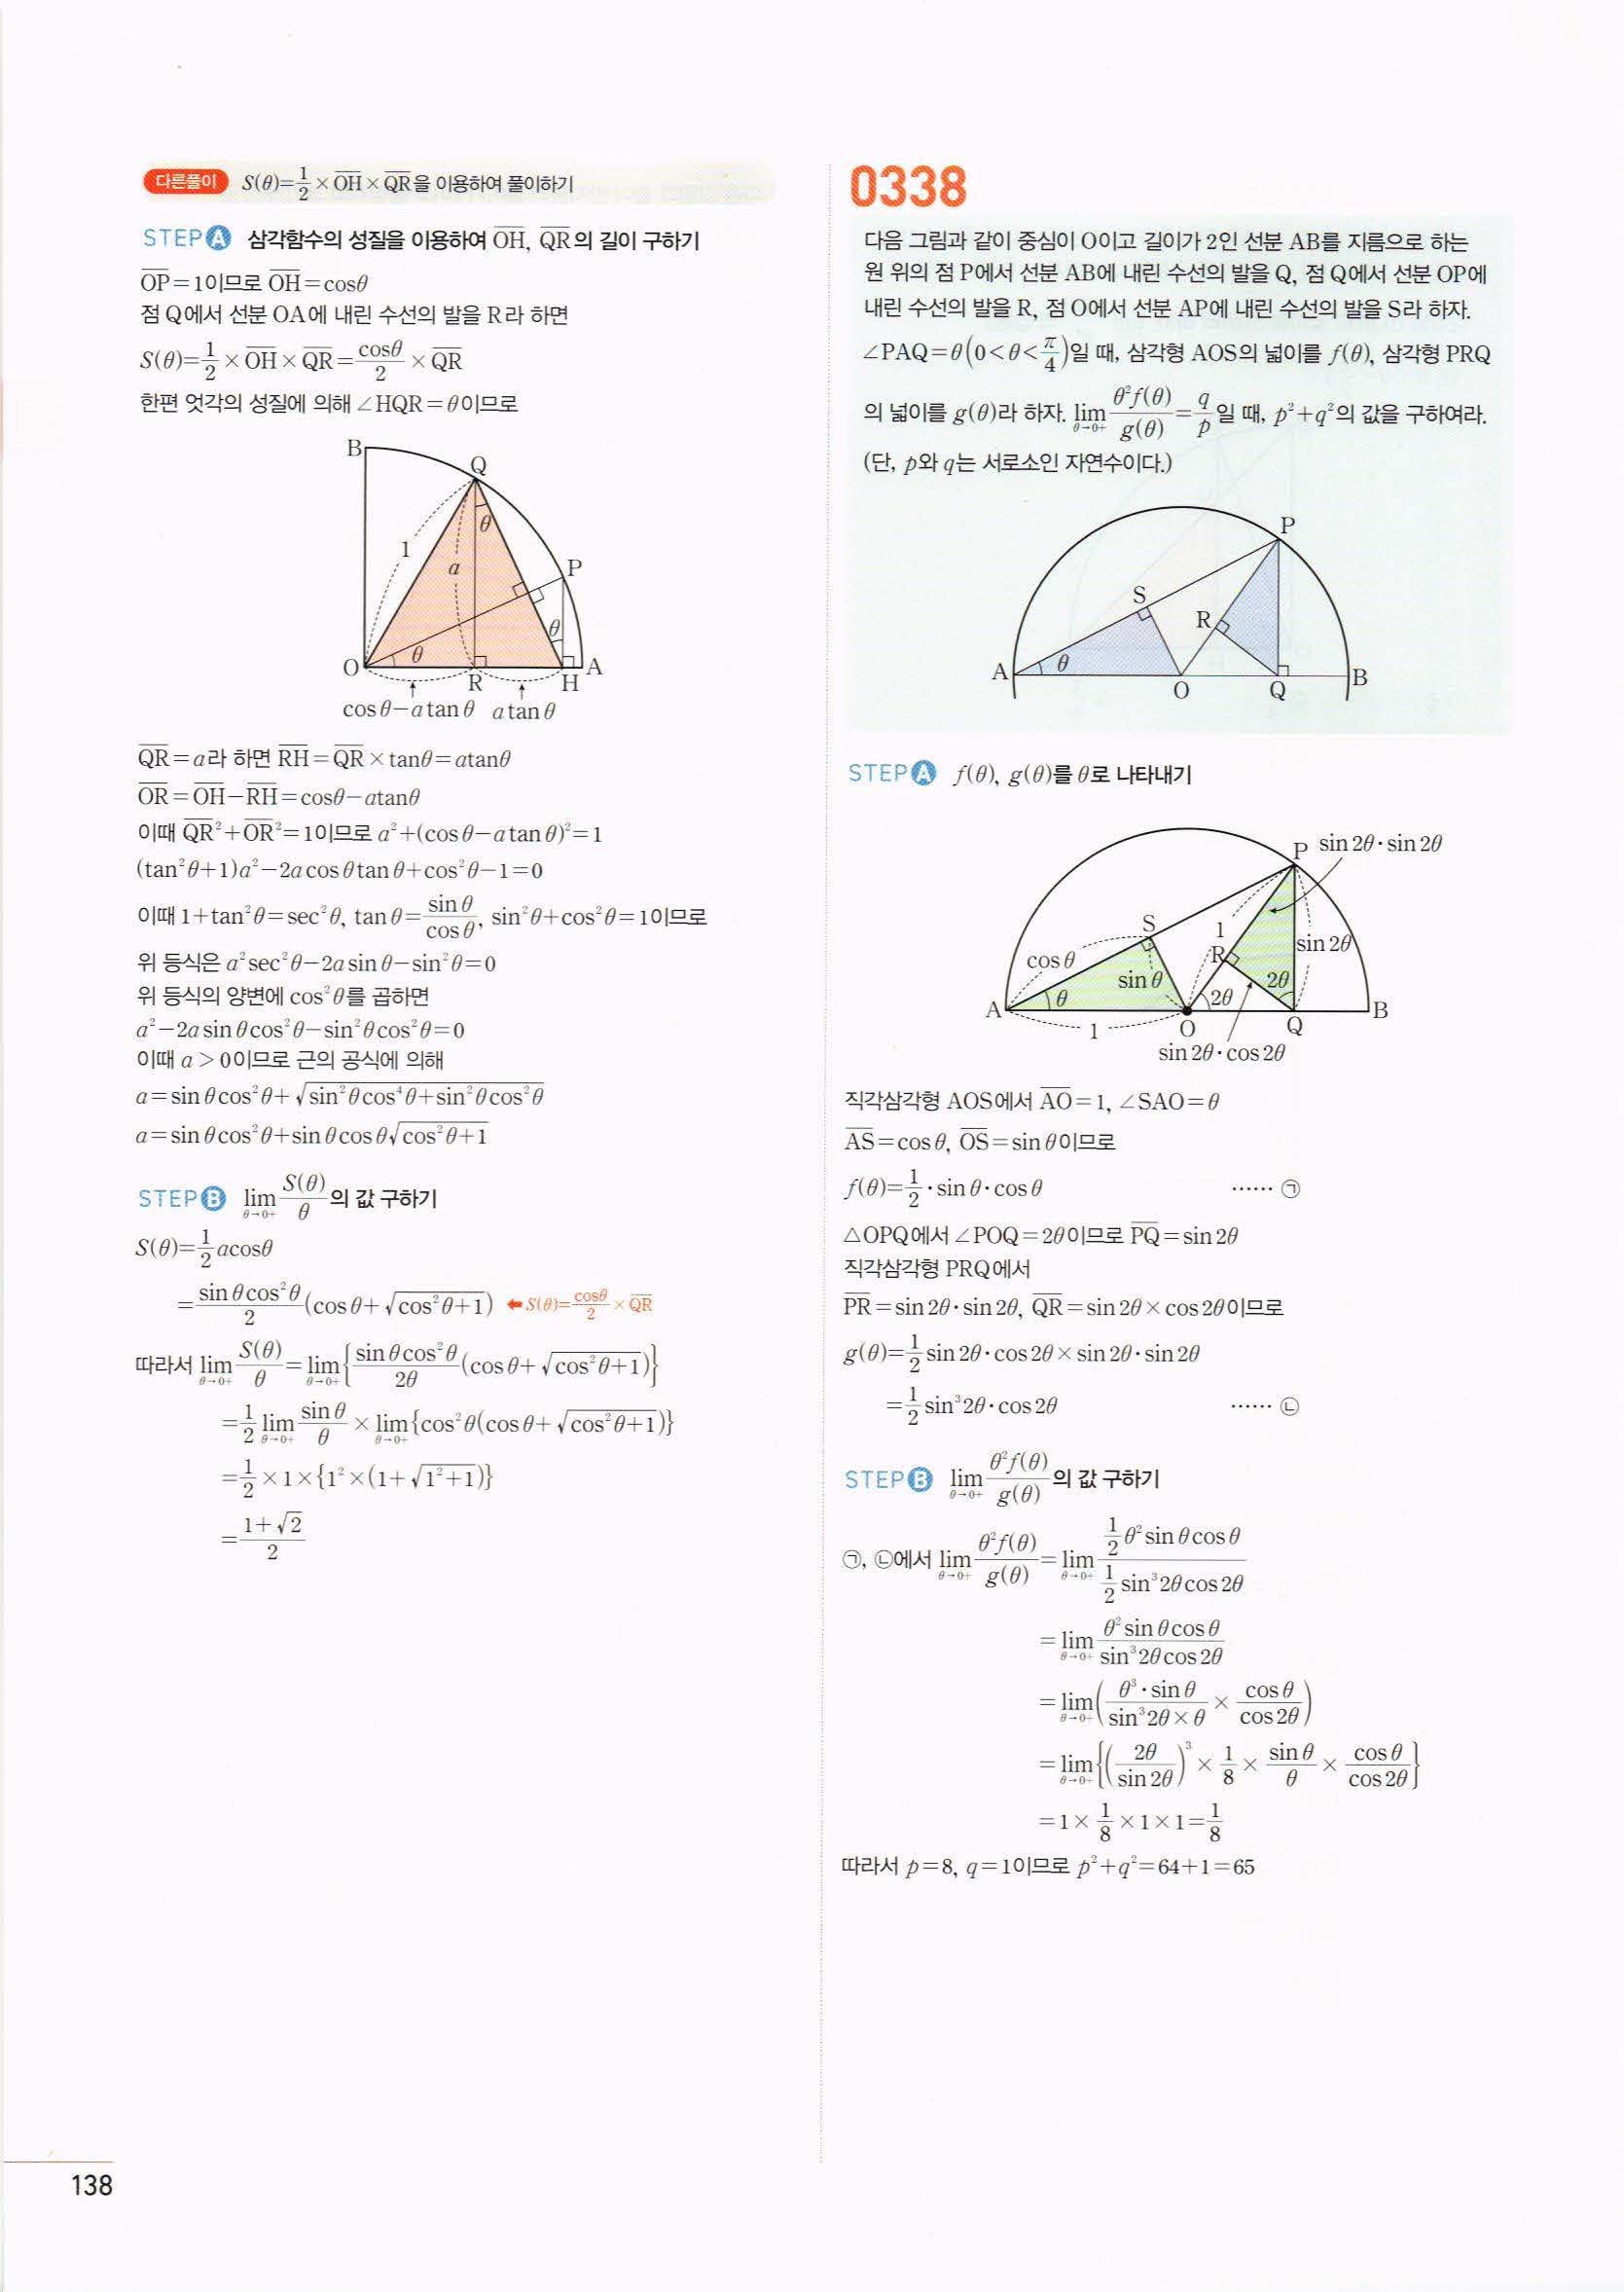 다른풀이 S(θ)=1/2×OH×QR을 이용하여 풀이하기
STEP A 삼각함수의 성질을 이용하여 OH, QR의 길이 구하기
OP=1이므로 OH=cosθ
점 Q에서 선분 OA에 내린 수선의 발을 R라 하면
S(θ)=1/2×OH×QR=cosθ/2×QR
한편 엇각의 성질에 의해 ∠HQR=θ이므로
B
Q
θ
1
a
P
θ
O
θ
R
H
A
cosθ−atanθ atanθ
QR=a라 하면 RH=QR×tanθ=atanθ
OR=OH−RH=cosθ−atanθ
이때 QR²+OR²=1이므로 a²+(cosθ−atanθ)²=1
(tan²θ+1)a²−2acosθtanθ+cos²θ−1=0
이때 1+tan²θ=sec²θ, tanθ=sinθ/cosθ, sin²θ+cos²θ=1이므로
위 등식은 a²sec²θ−2asinθ−sin²θ=0
위 등식의 양변에 cos²θ를 곱하면
a²−2asinθcos²θ−sin²θcos²θ=0
이때 a>0이므로 근의 공식에 의해
a=sinθcos²θ+√(sin²θcos⁴θ+sin²θcos²θ)
a=sinθcos²θ+sinθcosθ√(cos²θ+1)
STEP B lim θ→0+ S(θ)/θ의 값 구하기
S(θ)=1/2acosθ
=sinθcos²θ/2(cosθ+√(cos²θ+1)) ⬅S(θ)=cosθ/2×QR
따라서 lim θ→0+ S(θ)/θ=lim θ→0+{sinθcos²θ/2θ(cosθ+√(cos²θ+1))}
=1/2 lim θ→0+ sinθ/θ×lim θ→0+{cos²θ(cosθ+√(cos²θ+1))}
=1/2×1×{1²×(1+√(1²+1))}
=(1+√2)/2
138
0338
다음 그림과 같이 중심이 O이고 길이가 2인 선분 AB를 지름으로 하는
원 위의 점 P에서 선분 AB에 내린 수선의 발을 Q, 점 Q에서 선분 OP에
내린 수선의 발을 R, 점 O에서 선분 AP에 내린 수선의 발을 S라 하자.
∠PAQ=θ(0<θ<π/4)일 때, 삼각형 AOS의 넓이를 f(θ), 삼각형 PRQ
의 넓이를 g(θ)라 하자. lim θ→0+ θ²f(θ)/g(θ)=q/p일 때, p²+q²의 값을 구하여라.
(단, p와 q는 서로소인 자연수이다.)
P
S
R
A
θ
O
Q
B
STEP A f(θ), g(θ)를 θ로 나타내기
P sin2θ·sin2θ
S
1
R
sin2θ
cosθ
sinθ
2θ
θ
2θ
A
O
Q
B
1
sin2θ·cos2θ
직각삼각형 AOS에서 AO=1, ∠SAO=θ
AS=cosθ, OS=sinθ이므로
f(θ)=1/2·sinθ·cosθ ⋯⋯ ㉠
△OPQ에서 ∠POQ=2θ이므로 PQ=sin2θ
직각삼각형 PRQ에서
PR=sin2θ·sin2θ, QR=sin2θ×cos2θ이므로
g(θ)=1/2sin2θ·cos2θ×sin2θ·sin2θ
=1/2sin³2θ·cos2θ ⋯⋯ ㉡
STEP B lim θ→0+ θ²f(θ)/g(θ)의 값 구하기
㉠, ㉡에서 lim θ→0+ θ²f(θ)/g(θ)=lim θ→0+ (1/2θ²sinθcosθ)/(1/2sin³2θcos2θ)
=lim θ→0+ θ²sinθcosθ/sin³2θcos2θ
=lim θ→0+(θ³·sinθ/sin³2θ×θ × cosθ/cos2θ)
=lim θ→0+{(2θ/sin2θ)³×1/8×sinθ/θ×cosθ/cos2θ}
=1×1/8×1×1=1/8
따라서 p=8, q=1이므로 p²+q²=64+1=65